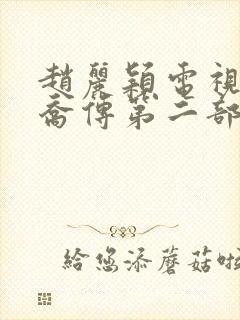 趙麗穎電視
喬傳第二部
給您添蘑菇啦